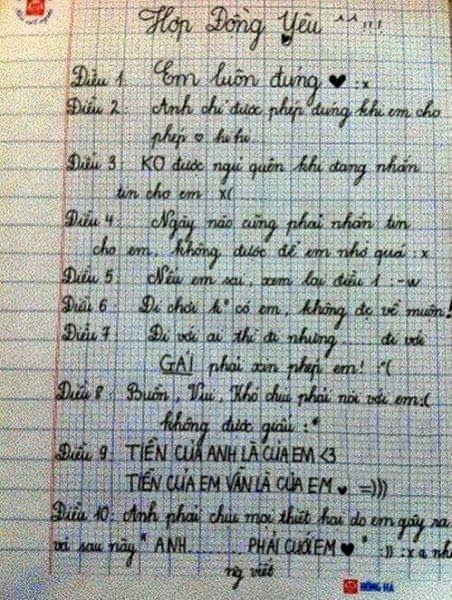 Hợp Đồng Yêu ^^!!!
Điều 1: Em luôn đúng ♥ :x
Điều 2: Anh chỉ được phép đúng khi em cho
phép ♡ hihi...
Điều 3: KO được ngủ quên khi đang nhắn
tin cho em x( .....
Điều 4: Ngày nào cũng phải nhắn tin
cho em, không được để em nhớ quá :x
Điều 5: Nếu em sai, xem lại điều 1 :-w
Điều 6: Đi chơi k° có em, không đc về muộn!
Điều 7: Đi với ai thì đi nhưng ..... đi với
GÁI phải xin phép em! :"(
Điều 8: Buồn, Vui, Khó chịu phải nói với em:(
không được giấu :*
Điều 9: TIỀN CỦA ANH LÀ CỦA EM <3
TIỀN CỦA EM VẪN LÀ CỦA EM ♥ =)))
Điều 10: Anh phải chịu mọi thiệt hại do em gây ra
và sau này " ANH......... PHẢI CƯỚI EM ♥ " :)) :x a nhi
ng viết
HỒNG HÀ